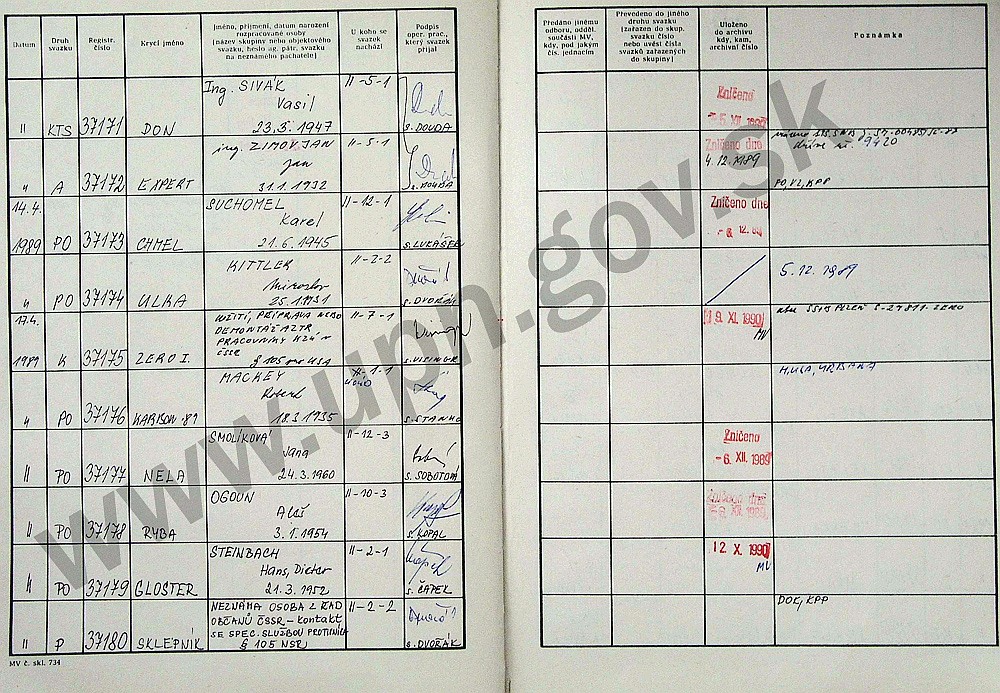 Datum
Druh svazku
Registr. číslo
Krycí jméno
Jméno, příjmení, datum narození
rozpracované osoby
(název skupiny nebo objektového
svazku, heslo ag. pátr. svazku
na neznámého pachatele)
U koho se
svazek
nachází
Podpis
oper. prac.,
který svazek
přijal
Předáno jinému
odboru, odděl.
součásti MV,
kdy, pod jakým
čís. jednacím
Převedeno do jiného
druhu svazku
(zařazen do skup.
svazku číslo
nebo uvést čísla
svazků zařazených
do skupiny)
Uloženo
do archivu
kdy, kam,
archivní číslo
Poznámka
Ing. SIVÁK II-5-1
Vasil
II KTS 37171 DON 23.5.1947 s. DOUDA
Zničeno
-5. XII. 1989
ing. ZIMOVJAN II-5-1
Jan
" A 37172 EXPERT 31.1.1932 s. DOUDA
Zničeno dne
4.12.1989
9420
PO, VZ, KPP
14.4. SUCHOMEL II-12-1
Karel
1989 PO 37173 CHMEL 21.6.1945 s. LUKÁŠEK
Zničeno dne
KITTLER II-2-2
Miroslav
" PO 37174 ULRA 25. 1931 s. DVOŘÁK
5.12.1989
17.4. UŽITÍ, PŘÍPRAVA NEBO II-7-1
DEMONTÁŽ AZTR
PRACOVNÍKY
ČSSR
1989 K 37175 ZERO I. § 105 USA s. VISINGR
19. XI. 1990
MV
SSTB PLZEŇ
MACKEY II-1-1
Robert
" PO 37176 HARISON-89 18.3.1935 s. STANKO
SMOLÍKOVÁ II-12-3
Jana
II PO 37177 NELA 24.3.1960 s. SOBOTOVÁ
Zničeno
-6. XII. 1989
OGOUN II-10-3
Aleš
II PO 37178 RYBA 3.1.1954 s. KOPAL
Zničeno dne
XII. 1989
STEINBACH II-2-1
Hans, Dieter
II PO 37179 GLOSTER 21.3.1952 s. ČAPEK
12 X. 1990
MV
NEZNÁMÁ OSOBA Z ŘAD II-2-2
OBČANŮ ČSSR - kontakt
SE SPEC. SLUŽBOU PROTIVNÍKA
II P 37180 SKLEPNÍK § 105 NSR s. DVOŘÁK
DOK, KPP
MV č. skl. 734
www.upn.gov.sk